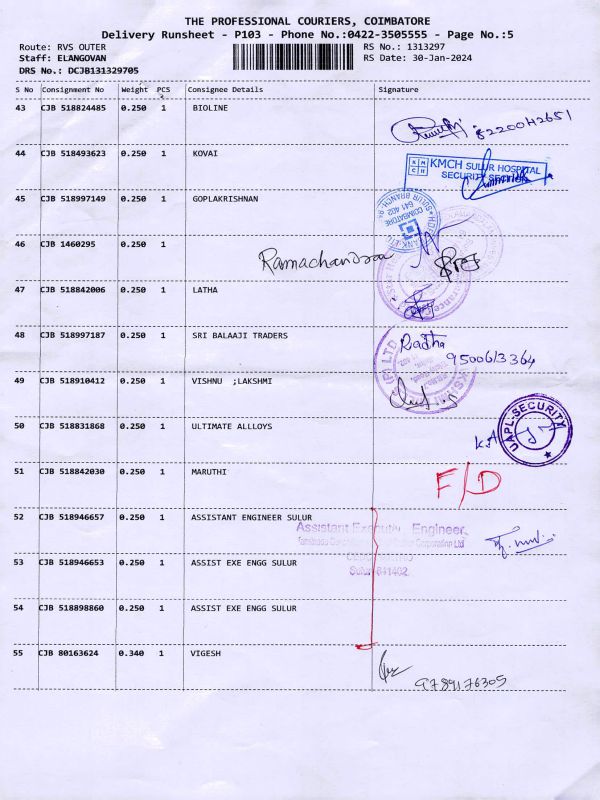 THE PROFESSIONAL COURIERS, COIMBATORE
Delivery Runsheet - P103 - Phone No.:0422-3505555 - Page No.:5
Route: RVS OUTER
RS No.: 1313297
Staff: ELANGOVAN
RS Date: 30-Jan-2024
DRS No.: DCJB131329705
S No Consignment No Weight PCS Consignee Details Signature
43 CJB 518824485 0.250 1 BIOLINE
8220042651
44 CJB 518493623 0.250 1 KOVAI
KMCH SULUR HOSPITAL
SECURITY SECTION
45 CJB 518997149 0.250 1 GOPLAKRISHNAN
SULUR BRANCH
COIMBATORE
641 402
46 CJB 1460295 0.250 1
Ramachandra
47 CJB 518842006 0.250 1 LATHA
48 CJB 518997187 0.250 1 SRI BALAAJI TRADERS
Radha
9500613364
49 CJB 518910412 0.250 1 VISHNU ;LAKSHMI
50 CJB 518831868 0.250 1 ULTIMATE ALLLOYS
UAPL-SECURITY
51 CJB 518842030 0.250 1 MARUTHI
F/D
52 CJB 518946657 0.250 1 ASSISTANT ENGINEER SULUR
Assistant Executive Engineer,
Corporation Ltd
53 CJB 518946653 0.250 1 ASSIST EXE ENGG SULUR
Sulur 641402.
54 CJB 518898860 0.250 1 ASSIST EXE ENGG SULUR
55 CJB 80163624 0.340 1 VIGESH
9789176305